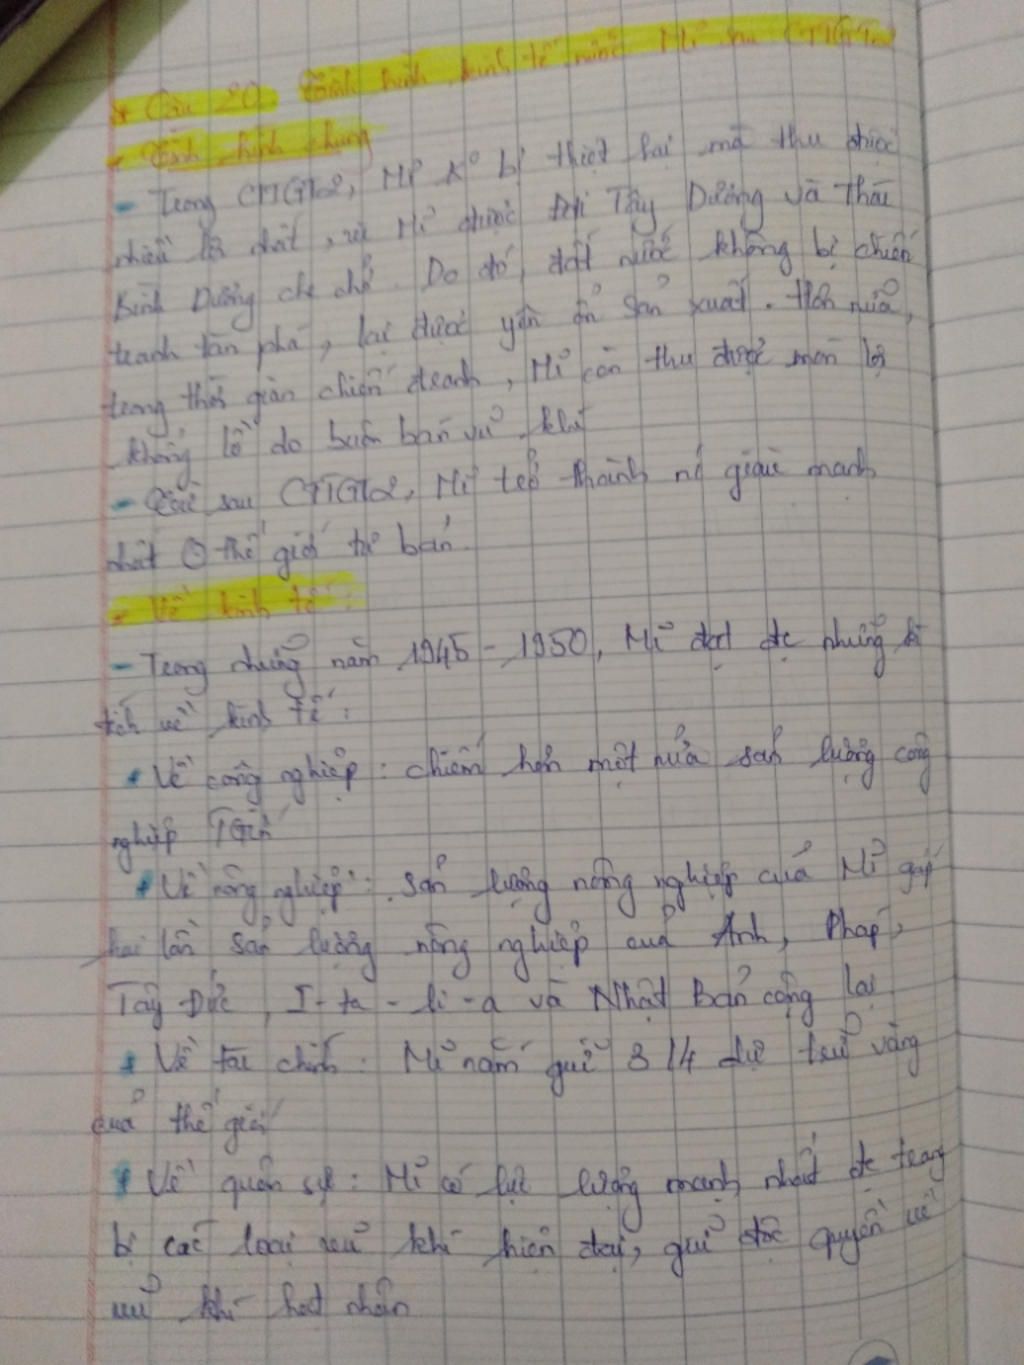 * Câu 20. Tình hình kinh tế nước Mĩ sau CTTG2
* Tình hình chung
- Trong CTTG2, Mĩ k° bị thiệt hại mà thu được
nhiều lợi nhất, vì Mĩ được Đại Tây Dương và Thái
Bình Dương che chở. Do đó, đất nước không bị chiến
tranh tàn phá, lại được yên ổn sản xuất. Hơn nữa,
trong thời gian chiến tranh, Mĩ còn thu được món lợi
khổng lồ do buôn bán vũ khí
- Từ sau CTTG2, Mĩ trở thành nc giàu mạnh
nhất ở thế giới tư bản.
* Về kinh tế:
- Trong những năm 1945 - 1950, Mĩ đạt đc những kì
tích về kinh tế:
+ Về công nghiệp: chiếm hơn một nửa sản lượng công
nghiệp TGiới
+ Về nông nghiệp: sản lượng nông nghiệp của Mĩ gấp
hai lần sản lượng nông nghiệp của Anh, Pháp,
Tây Đức, I-ta-li-a và Nhật Bản cộng lại
+ Về tài chính: Mĩ nắm giữ 3/4 dự trữ vàng
của thế giới
+ Về quân sự: Mĩ có lực lượng mạnh nhất đc trang
bị các loại vũ khí hiện đại, giữ độc quyền về
vũ khí hạt nhân